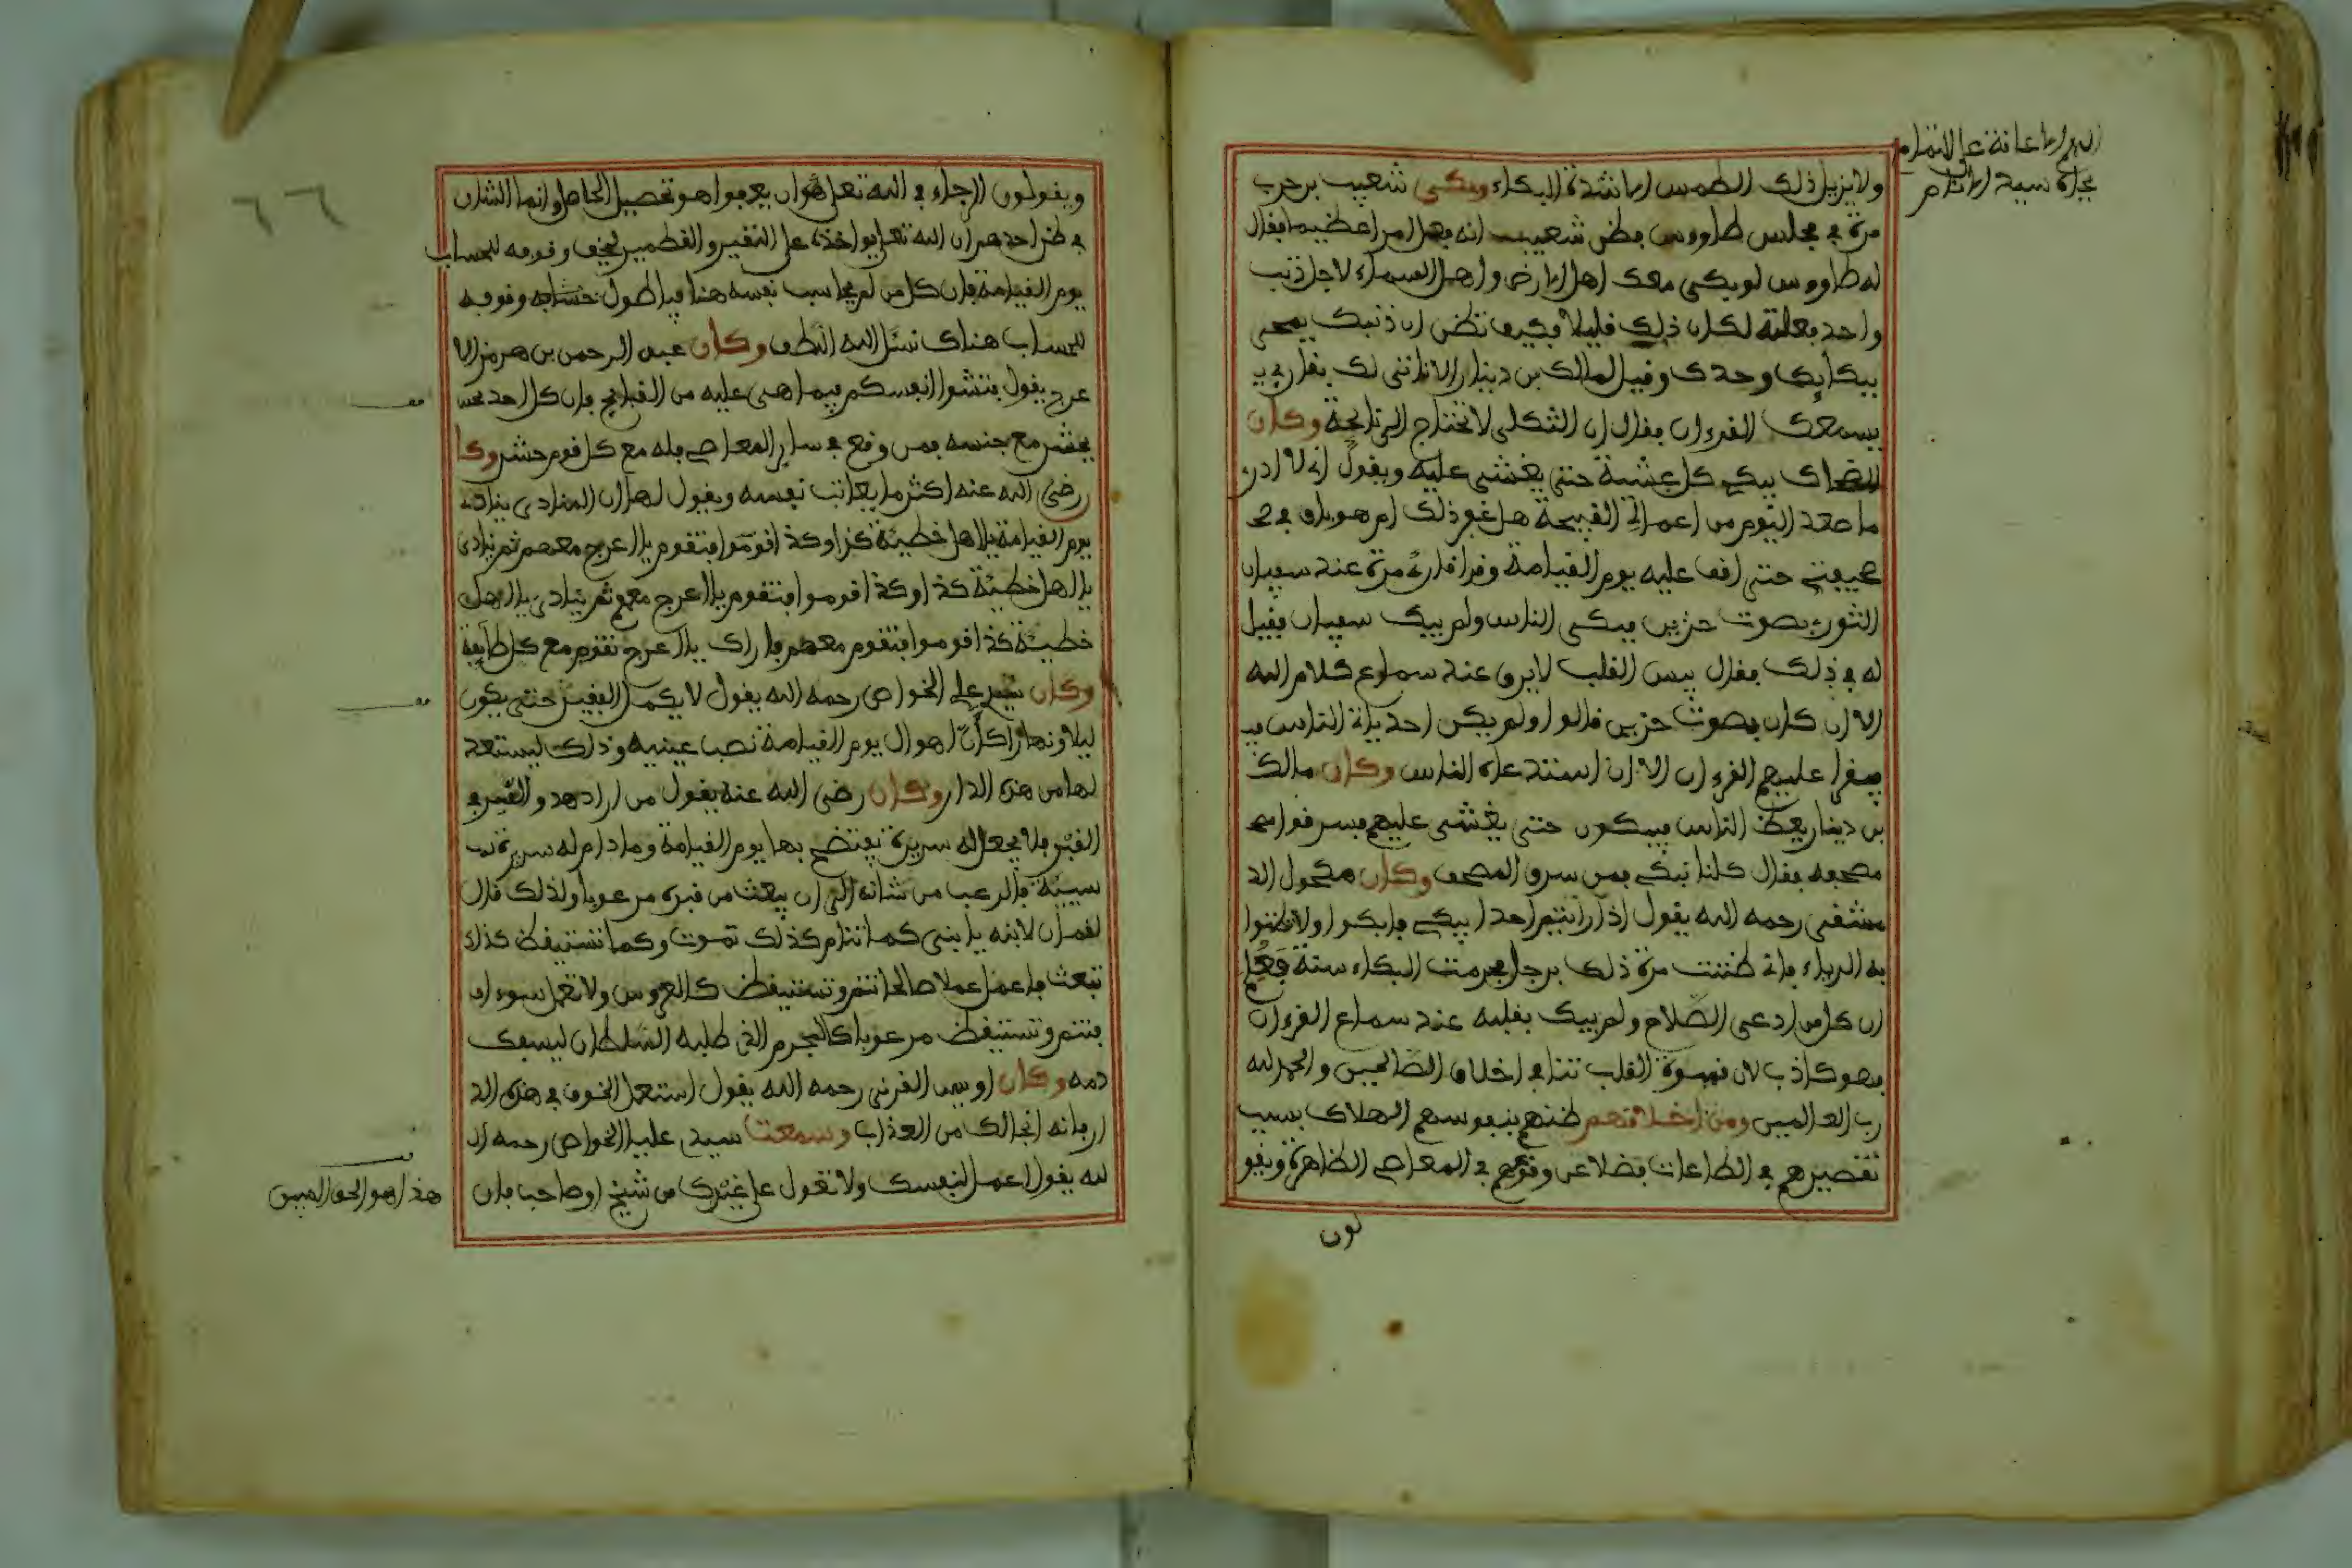 ولا يزيل ذلك الطمس الا شدة البكاء وبكى شعيب بن حرب
مرة في مجلس طاووس فظن شعيب انه فعل امرا عظيما فقال
له طاووس لو بكى معك اهل الارض واهل السماء لاجل ذنب
واحد فعلته لكان ذلك قليلا فكيف تظن ان ذنبك يمحى
ببكائك وحدك وقيل لمالك بن دينار الا ناتي لك بقارئ
يسمعك القرءان فقال ان الثكلى لا تحتاج الى نائحة وكان
الضحاك يبكي كل عشية حتى يغشى عليه ويقول اني لا ادري
ما صعد اليوم من اعمالي القبيحة هل غفر ذلك ام هو باق في صحـ
صحيفتي حتى اقف عليه يوم القيامة وقرا قارئ مرة عند سفيان
الثوري بصوت حزين فبكى الناس ولم يبك سفيان فقيل
له في ذلك فقال ليس القلب لا يرق عند سماع كلام الله
الا ان كان بصوت حزين قالوا ولم يكن احد ياتي الناس
فيقرا عليهم القرءان الا ان استدعاه الناس وكان مالك
بن دينار يعظ الناس فيبكون حتى يغشى عليهم فسرقوا مـ
مصحفه فقال كلنا نبكي فمن سرق المصحف وكان مكحول الد
مشقي رحمه الله يقول اذا رأيتم احدا يبكي فابكوا ولا تظنوا
به الرياء فاني ظننت مرة ذلك برجل فحرمت البكاء سنة فعلم
ان كل من ادعى الصلاح ولم يبك بقلبه عند سماع القرءان
فهو كاذب لان قسوة القلب تنافي اخلاق الصالحين والحمد لله
رب العالمين ومن اخلاقهم ظنهم بنفوسهم الهلاك بسبب
تقصيرهم في الطاعات فضلا عن وقوعهم في المعاصي الظاهرة ويقو
لون
٦٦
ويقولون الرجاء في الله تعلى هو ان يعفو اهو تحصيل الحاصل وانما الشان
في ظن احدهم ان الله تعلى يؤاخذه على النقير والقطمير ليخف وقوفه للحساب
يوم القيامة فان كل من لم يحاسب نفسه هنا فيا طول حسابه وقوفه
للحساب هناك نسئل الله اللطف وكان عبد الرحمن بن هرمز الا
عرج يقول فتشوا انفسكم فيما هي عليه من القبائح فان كل احد
يحشر مع جنسه فمن وقع في ساير المعاصي فله مع كل قوم حشر وكا
رضي الله عنه اكثر ما يعاتب نفسه ويقول لها ان المنادي ينادي
يوم القيامة يا اهل خطيئة كذا وكذا قوموا فتقوم يا اعرج معهم ثم ينادي
يا اهل خطيئة كذا وكذا قوموا فتقوم يا اعرج معهم ثم ينادي يا اهل
خطيئة كذا قوموا فتقوم معهم فاراك يا اعرج تقوم مع كل طايفة
وكان سيدي علي الخواص رحمه الله يقول لا يكمل الفقير حتى يكون
ليلا ونهارا كأن اهوال يوم القيامة نصب عينيه وذلك ليستعد
لها من هذه الدار وكان رضي الله عنه يقول من اراد هدو السر في
القبر فلا يجعل له سريرة يفتضح بها يوم القيامة وما دام له سريرة
سيئة فالرعب من شانه الى ان يبعث من قبره مرعوبا ولذلك قال
لقمان لابنه يا بني كما تنام كذلك تموت وكما تستيقظ كذلك
تبعث فاعمل عملا صالحا تنم وتستيقظ كالعروس ولا تعمل سوءا
فتنم وتستيقظ مرعوبا كالمجرم الذي طلبه السلطان ليسفك
دمه وكان اويس القرني رحمه الله يقول استعمل الخوف في هذه الد
ار فانه انجا لك من العذاب وسمعت سيدي عليا الخواص رحمه ا
لله يقول اعمل لنفسك ولا تعول على غيرك من شيخ او صاحب فان
هذا هو الحق المبين